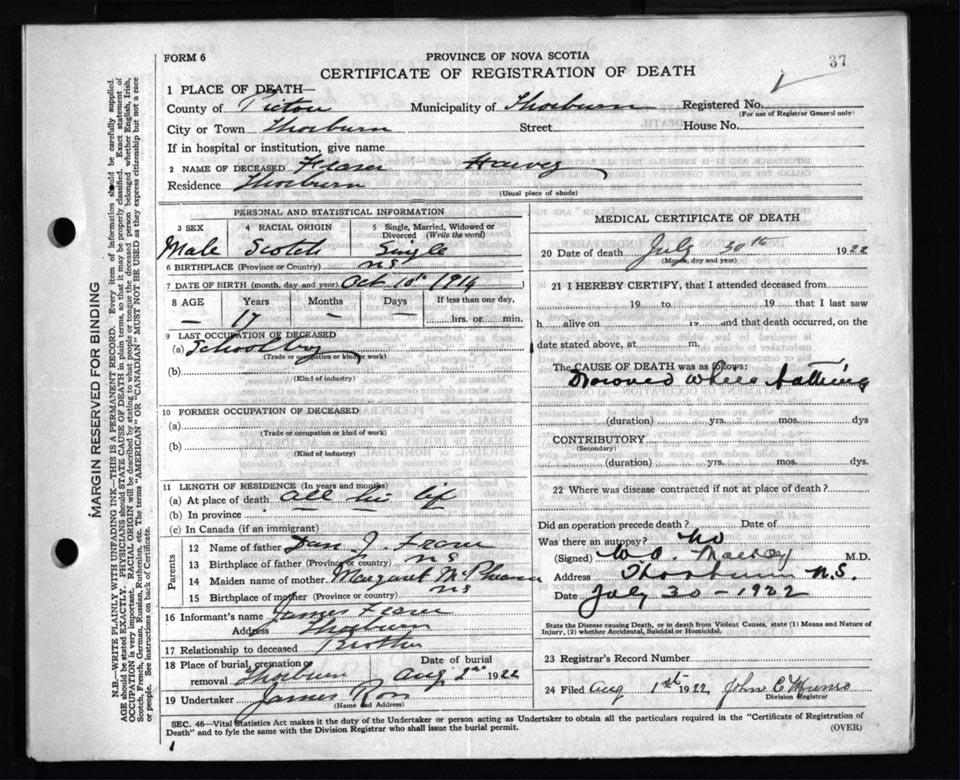 37
FORM 6
PROVINCE OF NOVA SCOTIA
CERTIFICATE OF REGISTRATION OF DEATH
1 PLACE OF DEATH—
County of Pictou Municipality of Thorburn Registered No.
(For use of Registrar General only)
City or Town Thorburn Street House No.
If in hospital or institution, give name
2 NAME OF DECEASED Fraser Harvey
Residence Thorburn
(Usual place of abode)
PERSONAL AND STATISTICAL INFORMATION
3 SEX 4 RACIAL ORIGIN 5 Single, Married, Widowed or Divorced (Write the word)
Male Scotch Single
6 BIRTHPLACE (Province or Country) N S
7 DATE OF BIRTH (month, day and year) Oct 10th 1914
8 AGE Years Months Days If less than one day,
— 17 — — hrs. or min.
9 LAST OCCUPATION OF DECEASED
(a) Schoolboy
(Trade or occupation or kind of work)
(b)
(Kind of industry)
10 FORMER OCCUPATION OF DECEASED
(a)
(Trade or occupation or kind of work)
(b)
(Kind of industry)
11 LENGTH OF RESIDENCE (In years and months)
(a) At place of death all his lif
(b) In province
(c) In Canada (if an immigrant)
Parents
12 Name of father Dan J. Fraser
13 Birthplace of father (Province or country) N S
14 Maiden name of mother Margaret
15 Birthplace of mother (Province or country) NS
16 Informant's name James Fraser
Address Thorburn
17 Relationship to deceased Brother
18 Place of burial, cremation or removal Thorburn Date of burial Aug 2nd 1922
19 Undertaker James Ross
(Name and Address)
MEDICAL CERTIFICATE OF DEATH
20 Date of death July 30th 1922
(Month, day and year)
21 I HEREBY CERTIFY, that I attended deceased from
19 to 19 that I last saw
h alive on 19 and that death occurred, on the
date stated above, at m.
The CAUSE OF DEATH was as follows:
Drowned while bathing
(duration) yrs. mos. dys.
CONTRIBUTORY
(Secondary)
(duration) yrs. mos. dys.
22 Where was disease contracted if not at place of death?
Did an operation precede death? Date of
Was there an autopsy? No
(Signed) M.D.
Address Thorburn N.S.
Date July 30 – 1922
State the Disease causing Death, or in death from Violent Causes, state (1) Means and Nature of
Injury, (2) whether Accidental, Suicidal or Homicidal.
23 Registrar's Record Number
24 Filed Aug 1st 1922 John C Munro
Division Registrar
SEC. 46—Vital Statistics Act makes it the duty of the Undertaker or person acting as Undertaker to obtain all the particulars required in the "Certificate of Registration of
Death" and to fyle the same with the Division Registrar who shall issue the burial permit.
(OVER)
MARGIN RESERVED FOR BINDING
N.B.—WRITE PLAINLY WITH UNFADING INK—THIS IS A PERMANENT RECORD. Every item of information should be carefully supplied.
AGE should be stated EXACTLY. PHYSICIANS should STATE CAUSE OF DEATH in plain terms, so that it may be properly classified. Exact statement of
OCCUPATION is very important. RACIAL ORIGIN will be described by stating to what people or tongue the deceased person belonged whether English, Irish,
Scotch, French, German, Russian, Ruthenian, etc. The terms "AMERICAN" OR "CANADIAN" MUST NOT BE USED as they express citizenship but not a race
or people. See instructions on back of Certificate.